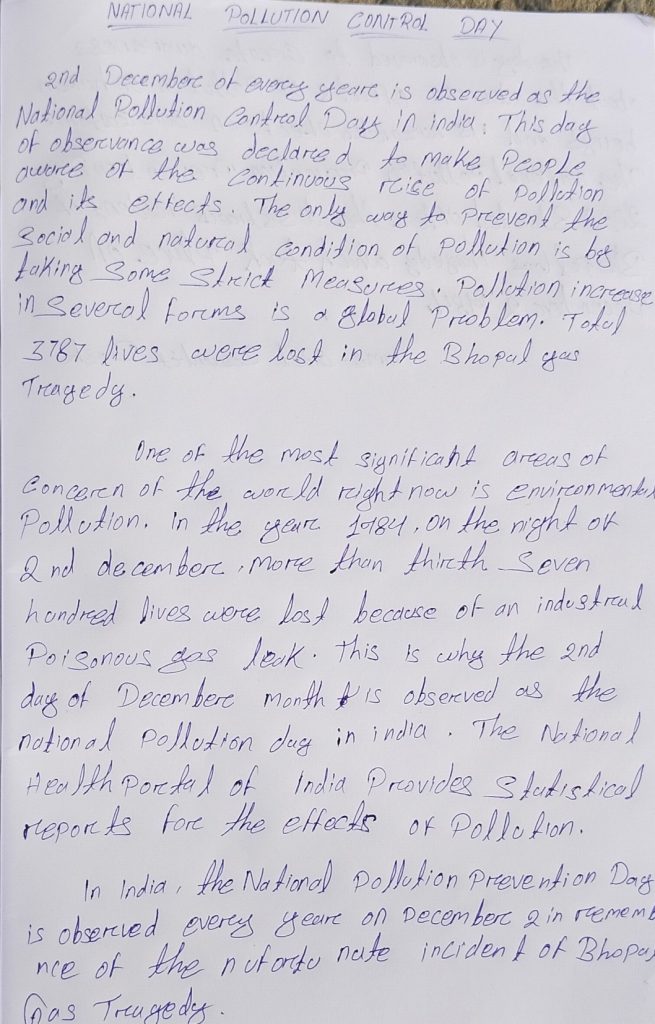 NATIONAL POLLUTION CONTROL DAY
2nd December of every year is observed as the
National Pollution Control Day in india. This day
of observance was declared to make People
aware of the continuous rise of pollution
and its effects. The only way to prevent the
Social and natural condition of Pollution is by
taking Some Strict Measures. Pollution increase
in Several forms is a global Problem. Total
3787 lives were lost in the Bhopal gas
Tragedy.
One of the most significant areas of
Concern of the world right now is environmental
Pollution. In the year 1984, on the night of
2nd december, more than thirth Seven
hundred lives were lost because of an industrial
Poisonous gas leak. This is why the 2nd
day of December month is observed as the
national Pollution day in india. The National
Health Portal of India Provides Statistical
reports for the effects of Pollution.
In India, the National Pollution Prevention Day
is observed every year on December 2 in rememb
nce of the nufortu nate incident of Bhopal
Gas Tragedy.